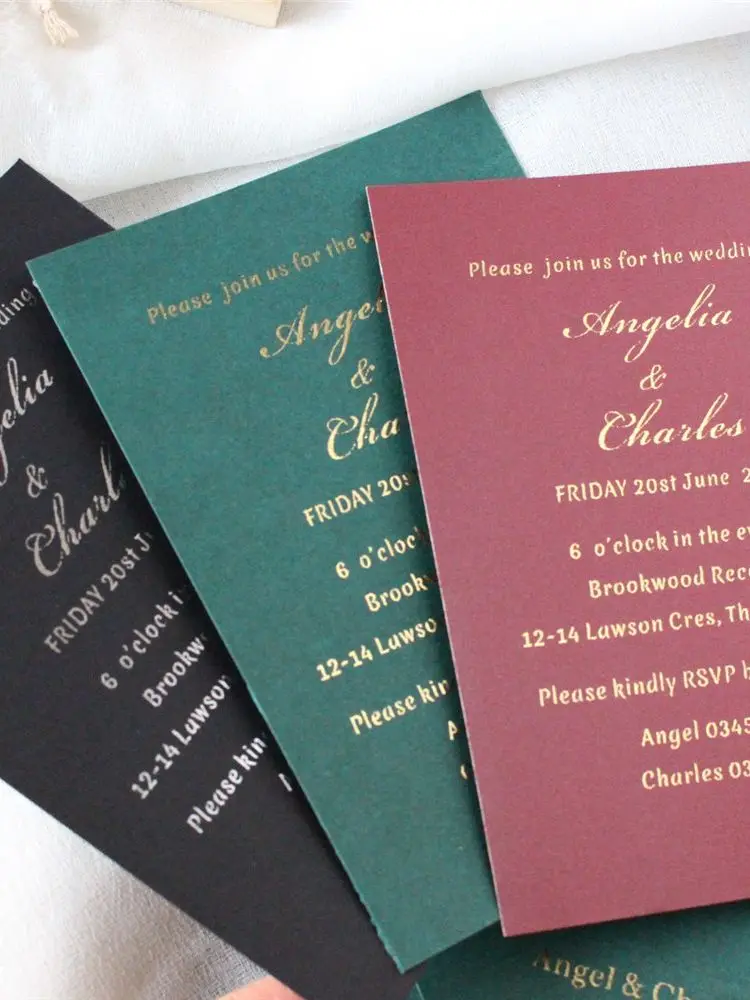 wedding
gelia
&
Charl
FRIDAY 20st Ju
6 o'clock in
Brookw
12-14 Lawson
Please kin
Please join us for the w
Ange
&
Cha
FRIDAY 20
6 o'cloc
Brookw
12-14 Lawso
Please kindly
A
Please join us for the weddin
Angelia
&
Charles
FRIDAY 20st June 2
6 o'clock in the ev
Brookwood Rece
12-14 Lawson Cres, Th
Please kindly RSVP b
Angel 0345
Charles 03
Angel & Ch